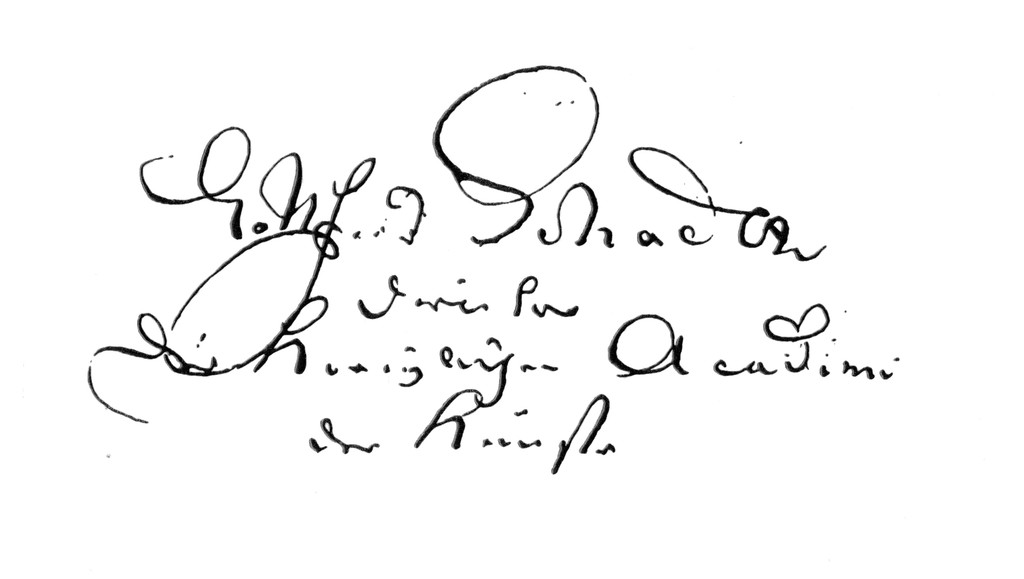 Gottfried Schadow
Director
der Königlichen Academie
der Künste